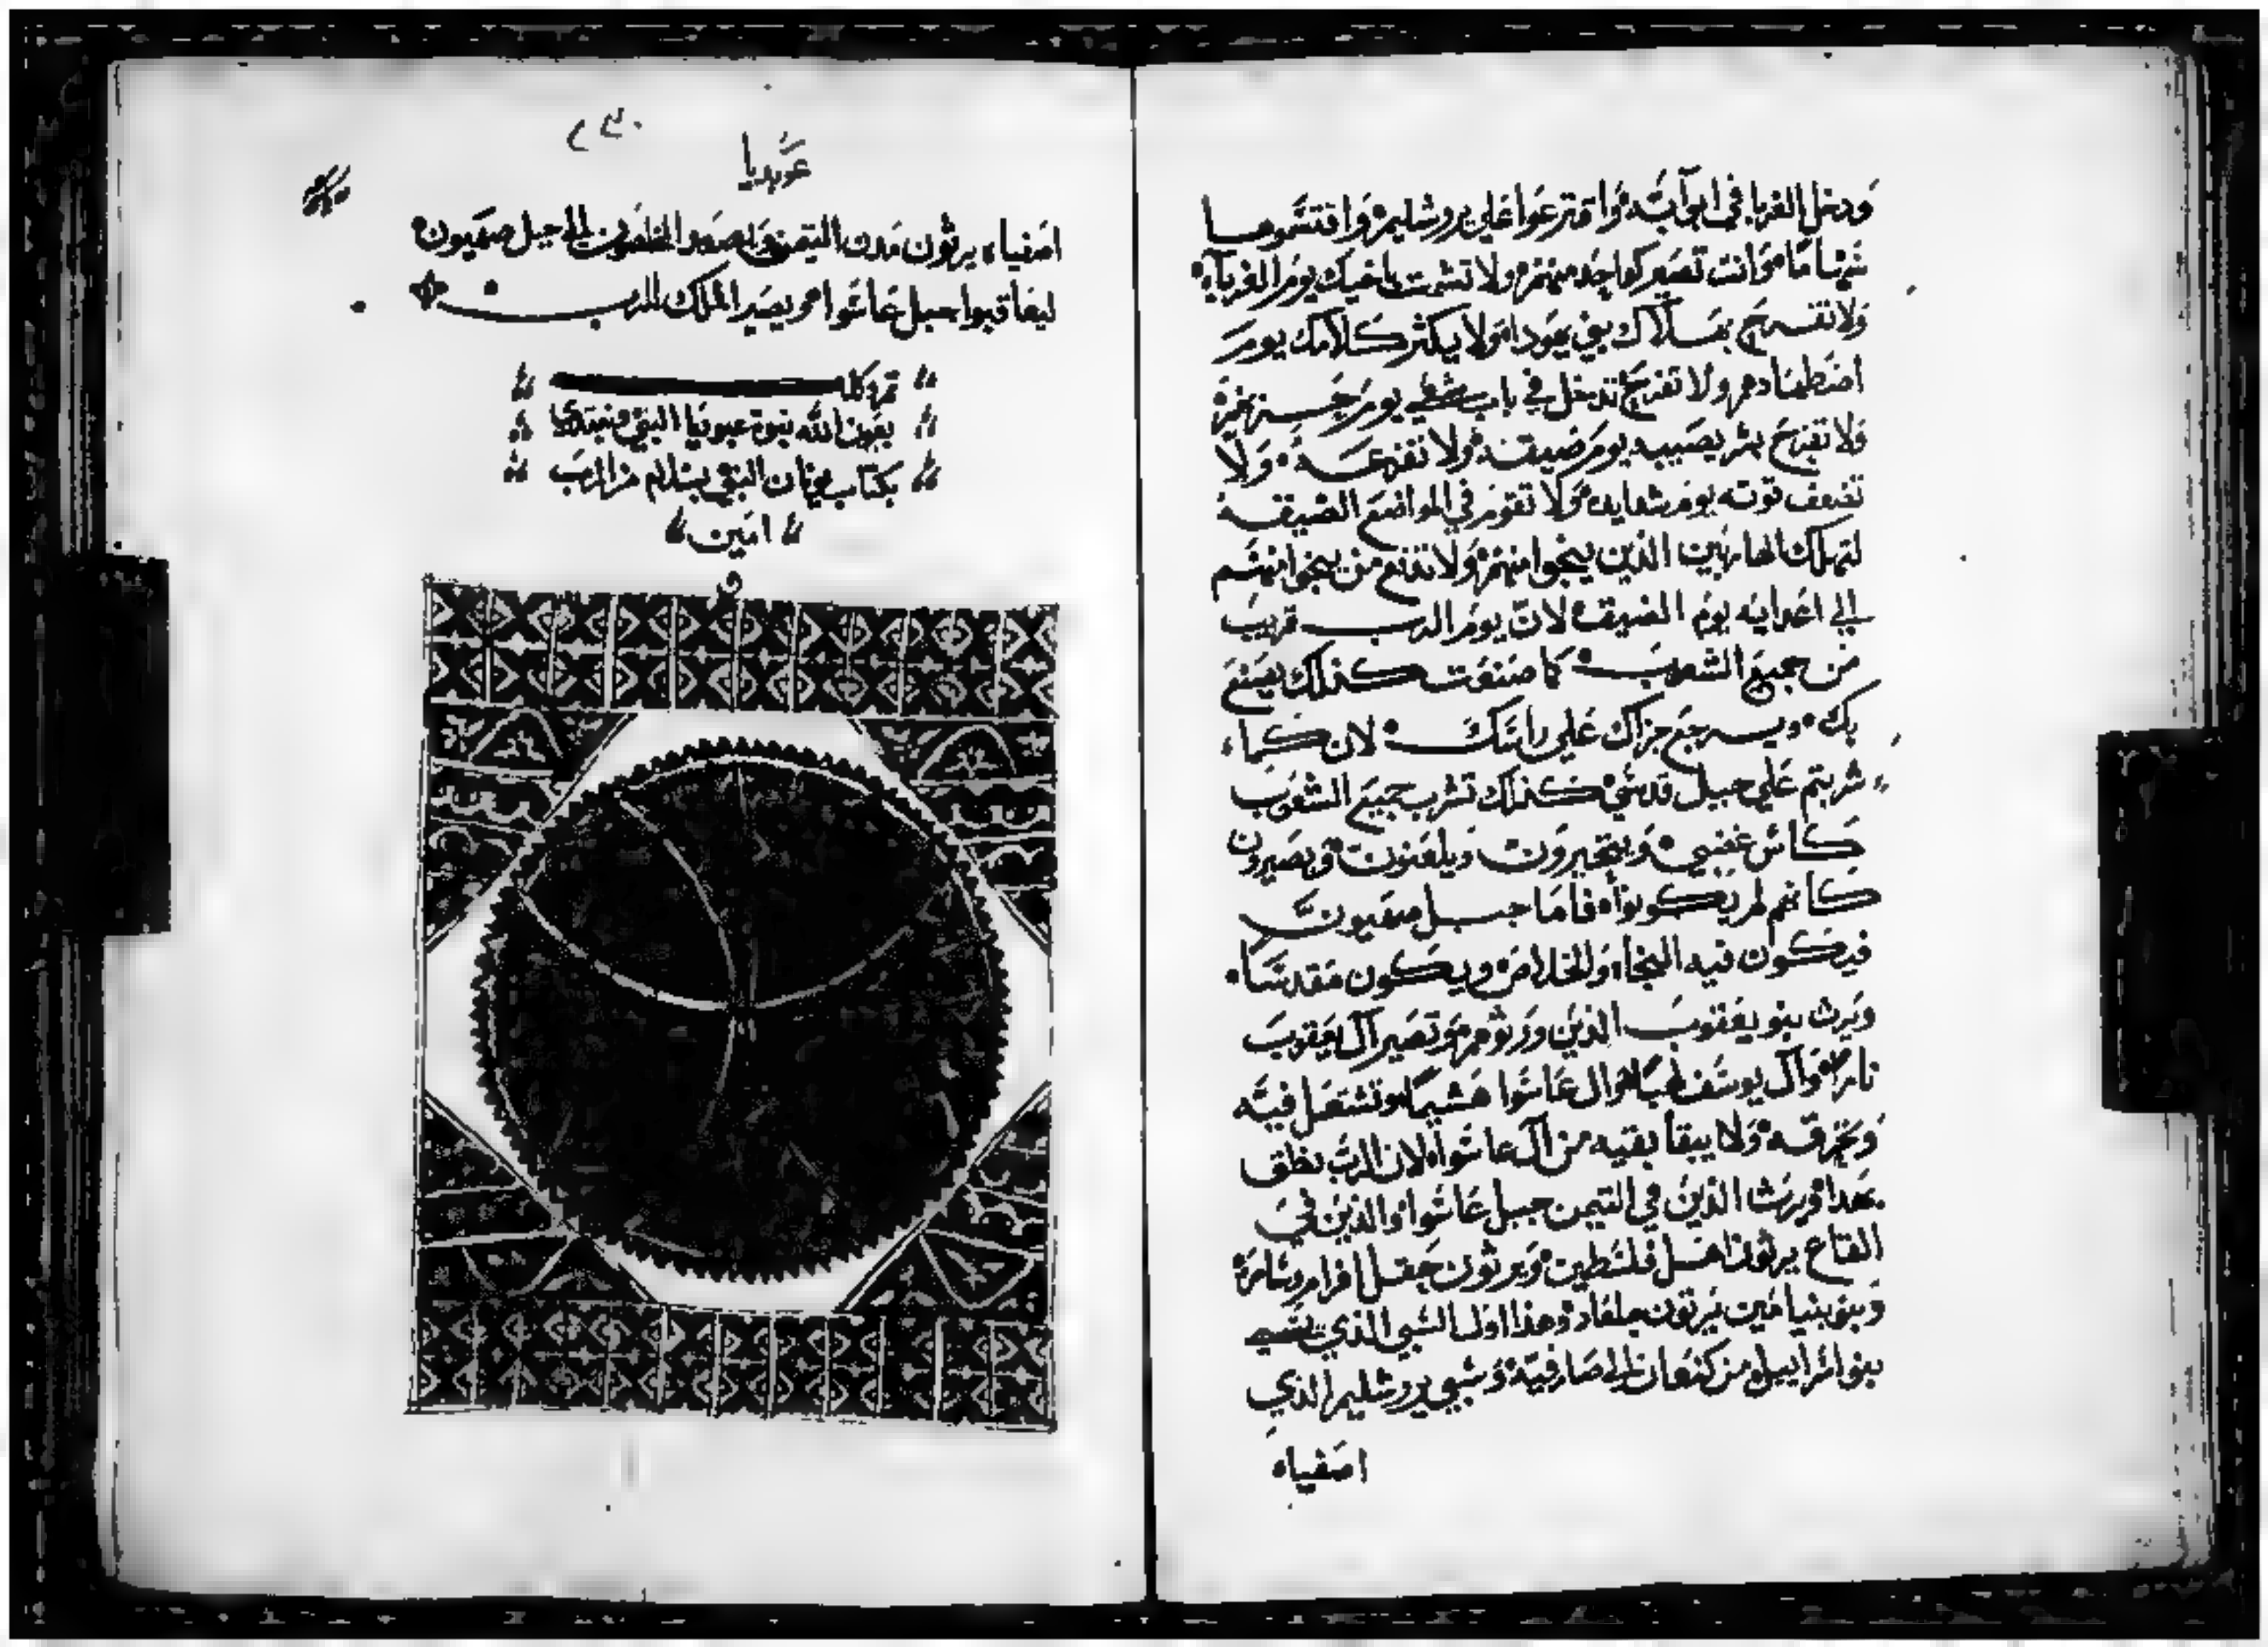 ودخل الغربا في ابوابه واقترعوا علي يروشليم واقتسموها
وانت تصير كواحد منهم ولا تشمت باخيك يوم الغربآ
ولا تفرح بهلاك بني يهودا ولا يكثر كلامك يوم
اضطهادهم ولا تفرح تدخل في باب شعبي يوم حزنهم
ولا تفرح بشر يصيبه يوم ضيقته ولا تفزعه ولا
تضعف قوته يوم شقايه ولا تقوم في المواضع الضيقه
لتهلك الهاربين الذين ينجوا منهم ولا تدفع من ينجوا منهم
الي اعدايه يوم الضيق لان يوم الرب قريب
من جميع الشعوب كما صنعت كذلك يصنع
بك ويرجع جزاك علي راسك لان كما
شربتم علي جبل قدسي كذلك تشرب جميع الشعوب
كاس غضبي ويتحيرون ويلعنون ويصيرون
كانهم لم يكونوا فاما جبل صهيون
فيكون فيه النجاه والخلاص ويكون مقدسا
ويرث بنو يعقوب الذين ورثوهم وتصير آل يعقوب
نارا وآل يوسف لهبا وال عاسوا هشيما وتشتعل فيه
وتحرقه ولا يبقا بقيه من آل عاسوا لان الرب نطق
بهدا ويرث الذين في التيمن جبل عاسوا والذين في
القاع يرثون اهل فلسطين ويرثون حقل افرام وسامره
وبني بنيامين يرثون جلعاد وهذا اول السبي الذي
بنوا اسراييل من كنعان الي صارفية وسبي يروشليم الذي
اصفياه
عوبديا
اصفياه يرثون مدن التيمن ويصعد المخلصون الي جبل صهيون
ليعاقبوا جبل عاسوا ويصير الملك للرب
تم وكل
بعون الله نبوة عبوديا النبي ونبتدي
بكتاب يونان النبي بسلام من الرب
امين